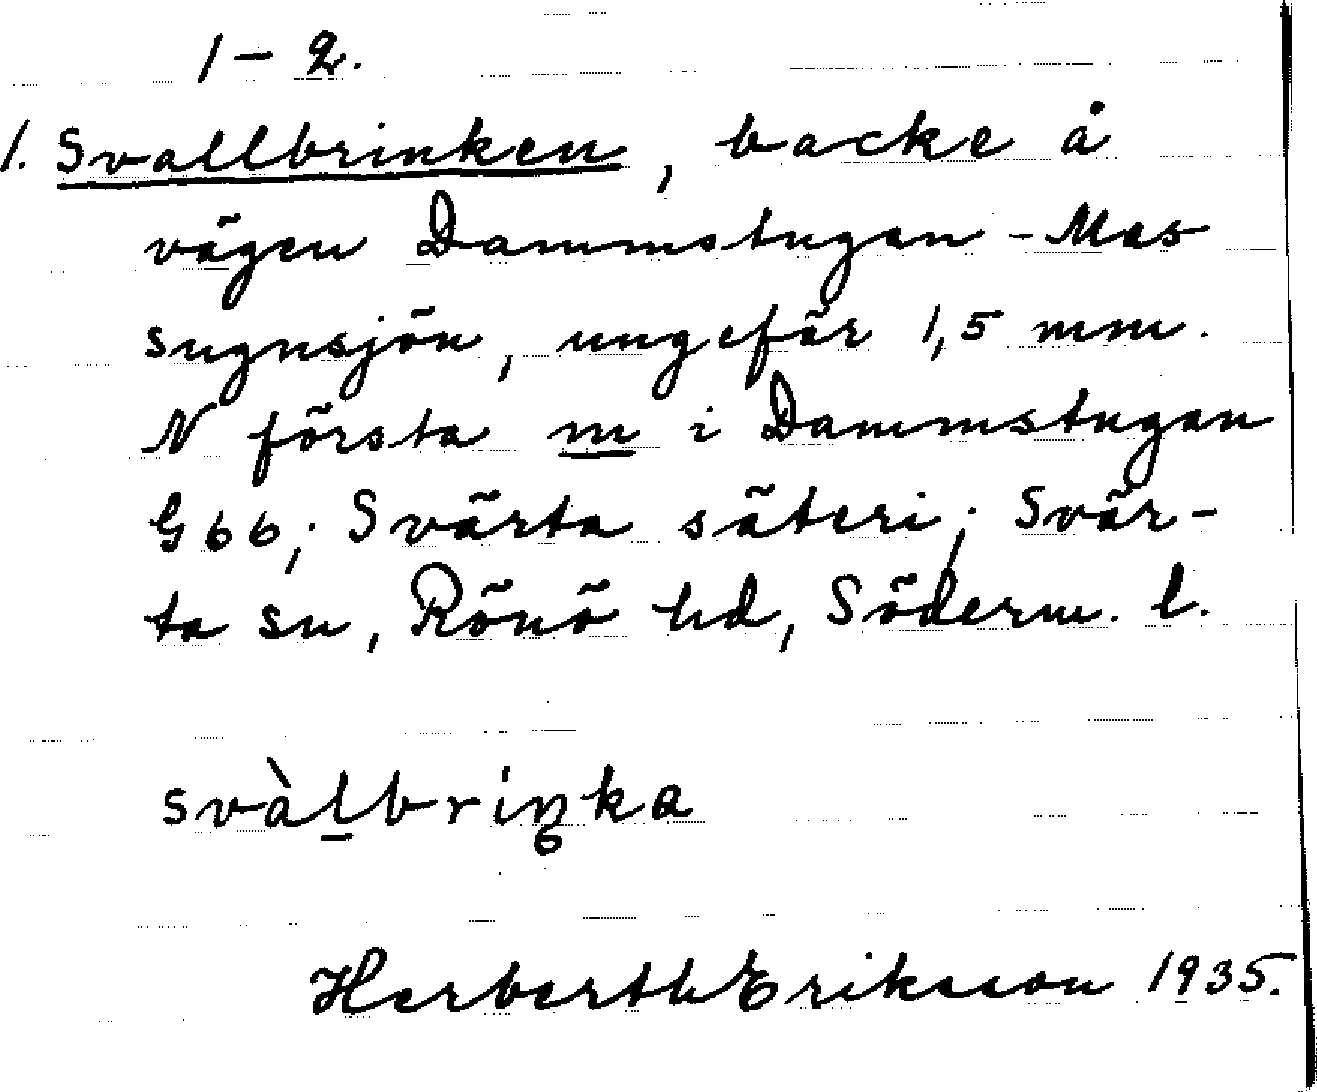 1–2.
1. Svallbrinken, backe å
vägen Dammstugan - Mas
sugnsjön, ungefär 1,5 mm.
N första m i Dammstugan
G66; Svärta säteri; Svär-
ta sn, Rönö hd, Söderm. l.
svàlbriŋka
Herberth Eriksson 1935.